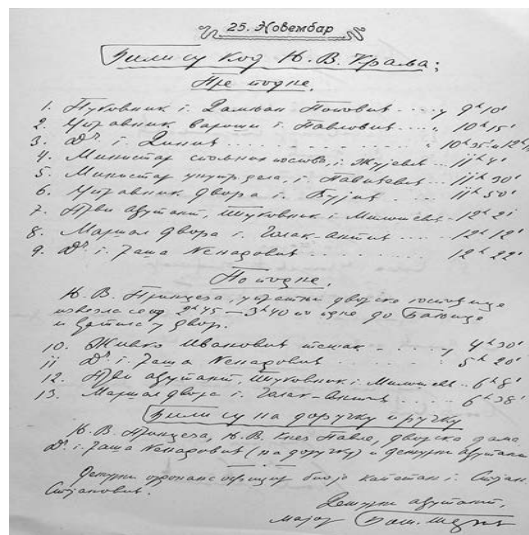 25. Новембар
Били су код Њ. В. Краља:
Пре подне,
1. Пуковник г. Дамјан Поповић .... у 9ʰ 10'
2. Управник вароши г. Павловић .... „ 10ʰ 15'
3. Дʳ г. .... 10ʰ 35' и 12ʰ
4. Министар спољних послова, г. Жујовић ... 11ʰ 4'
5. Министар унутр. дела, г. Павићевић ... 11ʰ 30'
6. Управник двора г. Вујић .... 11ʰ 50'
7. Први ађутант, Пуковник г. Милошев. 12ʰ 2'
8. Маршал двора г. Чолак-Антић .... 12ʰ 12'
9. Дʳ г. Јаша Ненадовић .... 12ʰ 22'
По подне,
Њ. В. Принцеза, у пратњи дворске госпођице
извезла се од 2ʰ 45 — 3ʰ 40 по подне до
и вратила у двор.
10. Живко Ивановић .... у 4ʰ 30'
11 Дʳ г. Јаша Ненадовић .... 5ʰ 20'
12. Први ађутант, Пуковник г. Милошев.. 6ʰ 8'
13. Маршал двора г. Чолак-Антић ... 6ʰ 38'
Били су на доручку и ручку
Њ. В. Принцеза, Њ. В. Кнез Павле, дворска дама
Дʳ г. Јаша Ненадовић (на доручку) и дежурни ађутант
Дежурни ордонанс официр био је капетан г. Стојан
Стојановић.
Дежурни ађутант,
мајор